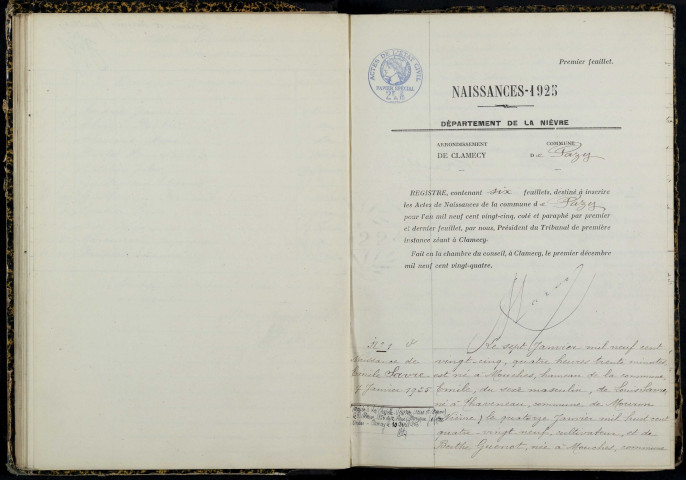 Premier feuillet.
ACTES DE L'ÉTAT CIVIL
PAPIER SPÉCIAL
NAISSANCES-1925
DÉPARTEMENT DE LA NIÈVRE
ARRONDISSEMENT
DE CLAMECY
COMMUNE
de Pazy
REGISTRE, contenant six feuillets, destiné à inscrire
les Actes de Naissances de la commune de Pazy
pour l'an mil neuf cent vingt-cinq, coté et paraphé par premier
et dernier feuillet, par nous, Président du Tribunal de première
instance séant à Clamecy.
Fait en la chambre du conseil, à Clamecy, le premier décembre
mil neuf cent vingt-quatre.
N° 1
Naissance de
Emile
7 Janvier 1925
Le sept Janvier mil neuf cent
vingt-cinq, quatre heures trente minutes
est né à Mouches, hameau de la commune
Emile, du sexe masculin, de Louis
né à commune de Mouron
(Nièvre) le quatorze Janvier mil huit cent
quatre-vingt neuf, cultivateur, et de
Berthe née à Mouches, commune